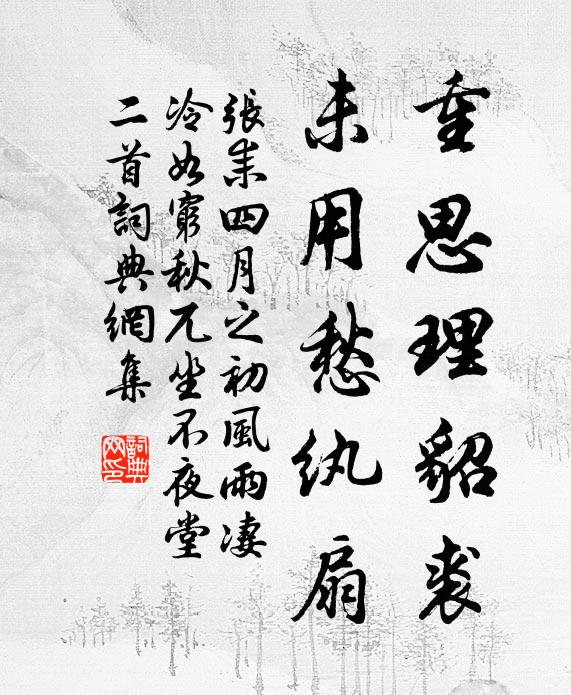 重思理貂裘
未用愁紈扇
張耒四月之初風雨凄
冷如窮秋兀坐不夜堂
二首詞典網集
詞典網印